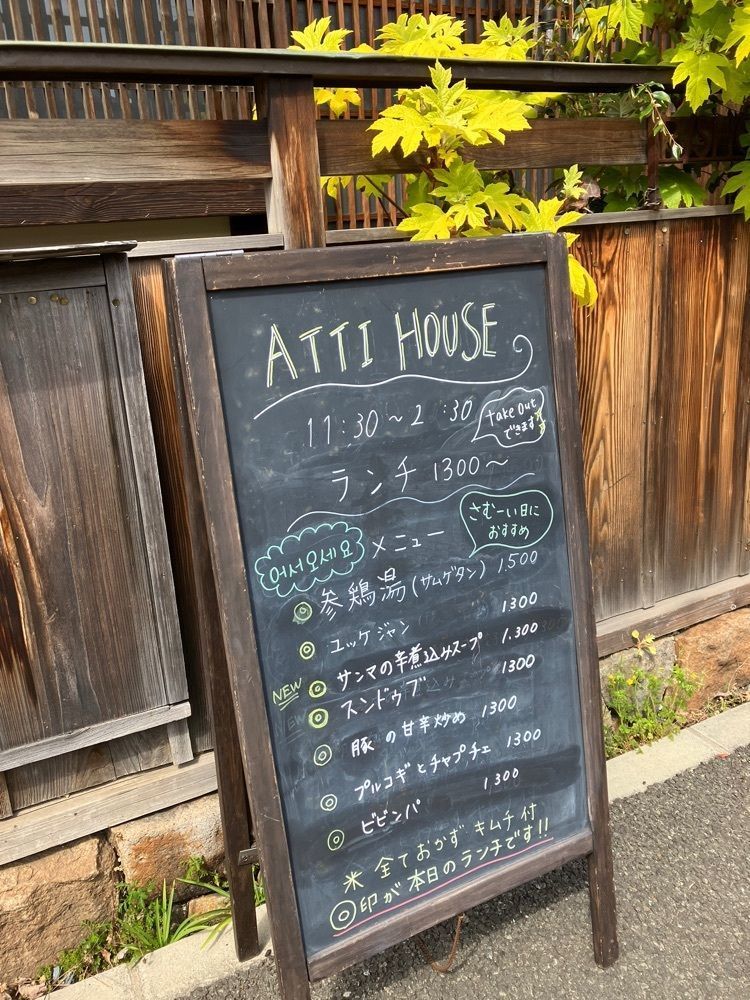 ATTI HOUSE
11:30～2 :30
take Out
できます
ランチ 1300～
さむーい日に
おすすめ
어서오세요
メニュー
◎ 参鶏湯(サムゲタン) 1,500
◎ ユッケジャン 1300
NEW ◎ サンマの辛煮込みスープ 1.300
◎ スンドゥブ 1300
◎ 豚の甘辛炒め 1300
◎ プルコギとチャプチェ 1300
◎ ビビンパ 1300
※ 全ておかず キムチ付
◎印が本日のランチです!!